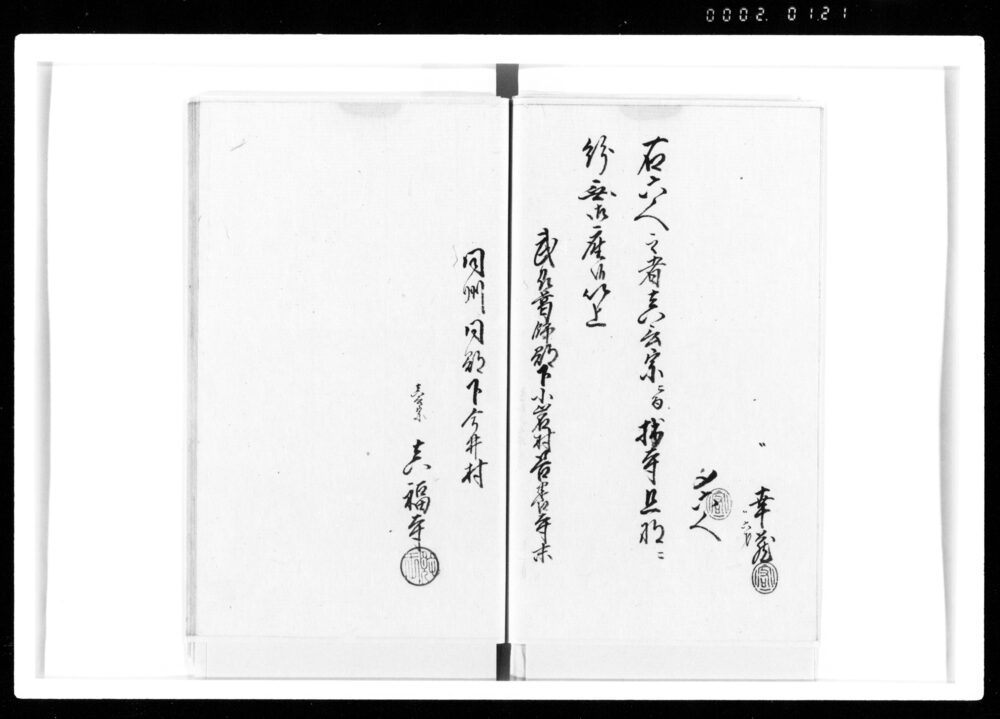 0002. 01.21
〃
幸蔵
〃六才
〆六人
右六人之者真言宗旨拙寺旦那ニ
紛無御座候以上
武州葛飾郡下小岩村善養寺末
同州同郡下今井村
真言宗
真福寺